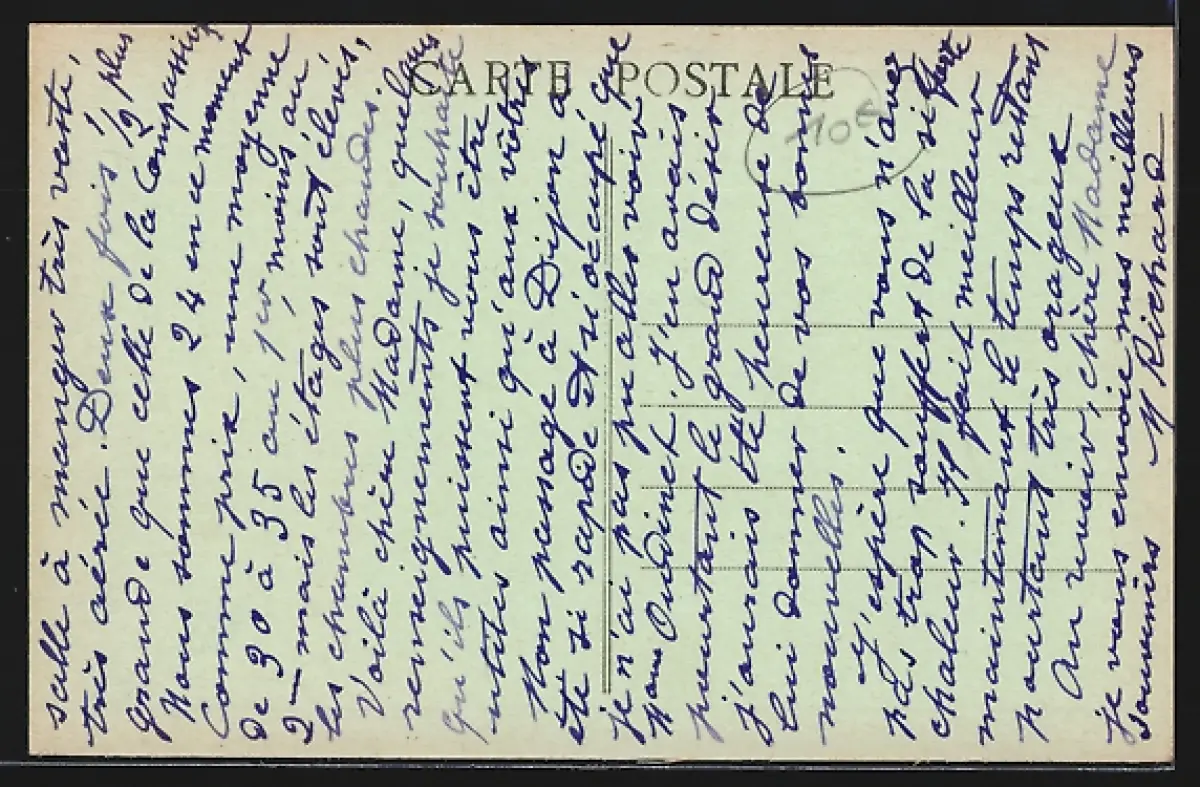 CARTE POSTALE
105
salle à manger très vaste,
très aérée. Deux fois 1/2 plus
grande que celle de la Compassion
Nous sommes 24 en ce moment
Comme prix, une moyenne
de 30 à 35 au jour, moins au
2– mais les étages sont élevés,
les chambres plus chaudes.
Voilà chère Madame, quelques
renseignements je souhaite
qu'ils puissent vous être
utiles ainsi qu'aux vôtres
Mon passage à Dijon a
été si rapide et si occupé que
je n'ai pas pu aller voir
Mme Oudinet. J'en avais
pourtant le grand désir
j'aurais été heureuse de
lui donner de vos bonnes
nouvelles.
J'espère que vous n'avez
pas trop souffert de la si forte
chaleur. Il fait meilleur
maintenant le temps restant
pourtant très orageux
Au revoir, chère Madame
je vous envoie mes meilleurs
souvenirs M Richard